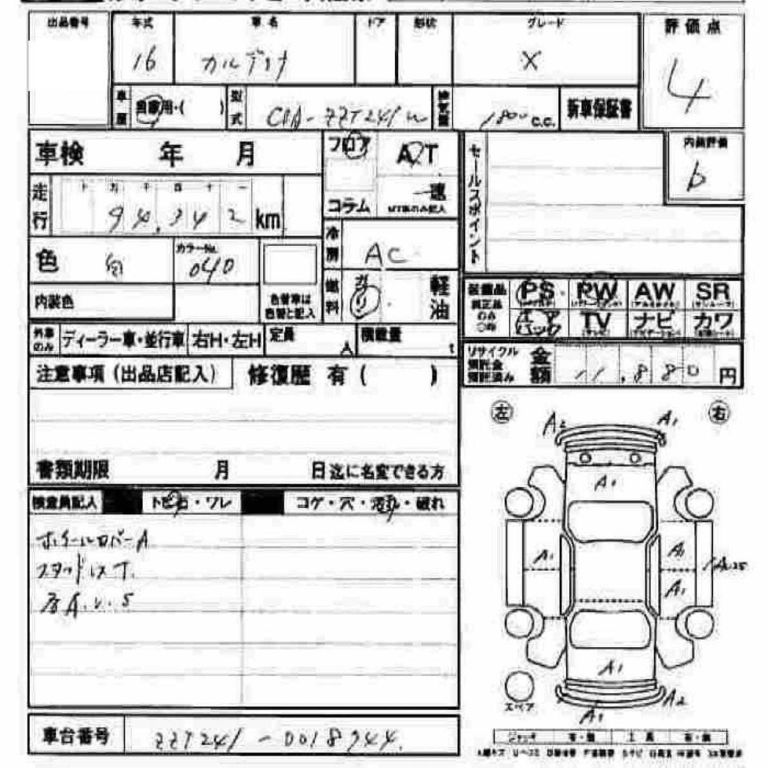 出品番号 年式 車名 ドア 形状 グレード 評価点
16 カルディナ X 4
車歴 自家用・( ) 型式 CBA-ZZT241W 排気量 1800 c.c. 新車保証書
車検 年 月 フロア A/T セールスポイント 内装評価
b
走行 十 万 千 百 十 一 速
94,342 km コラム MT車のみ記入
色 白 カラーNo. 040 冷房 AC
内装色 色替車は色替と記入 燃料 ガソリン・軽油 装備品 純正品のみ○印 PS PW AW SR
エアバック TV ナビ カワ
外車のみ ディーラー車・並行車 右H・左H 定員 人 積載量 t
リサイクル預託金預託済み 金額 11,880 円
注意事項(出品店記入) 修復歴 有( )
左 右
A2 A1
書類期限 月 日迄に名変できる方
A1
検査員記入 トビ石・ワレ コゲ・穴・汚れ・破れ
ホイールカバーA
A1 A1
スタッドレス T.
A1
A.U.S
A1
スペア
A1 A2
車台番号 ZZT241-0018944
ジャッキ 有・無 工具 有・無